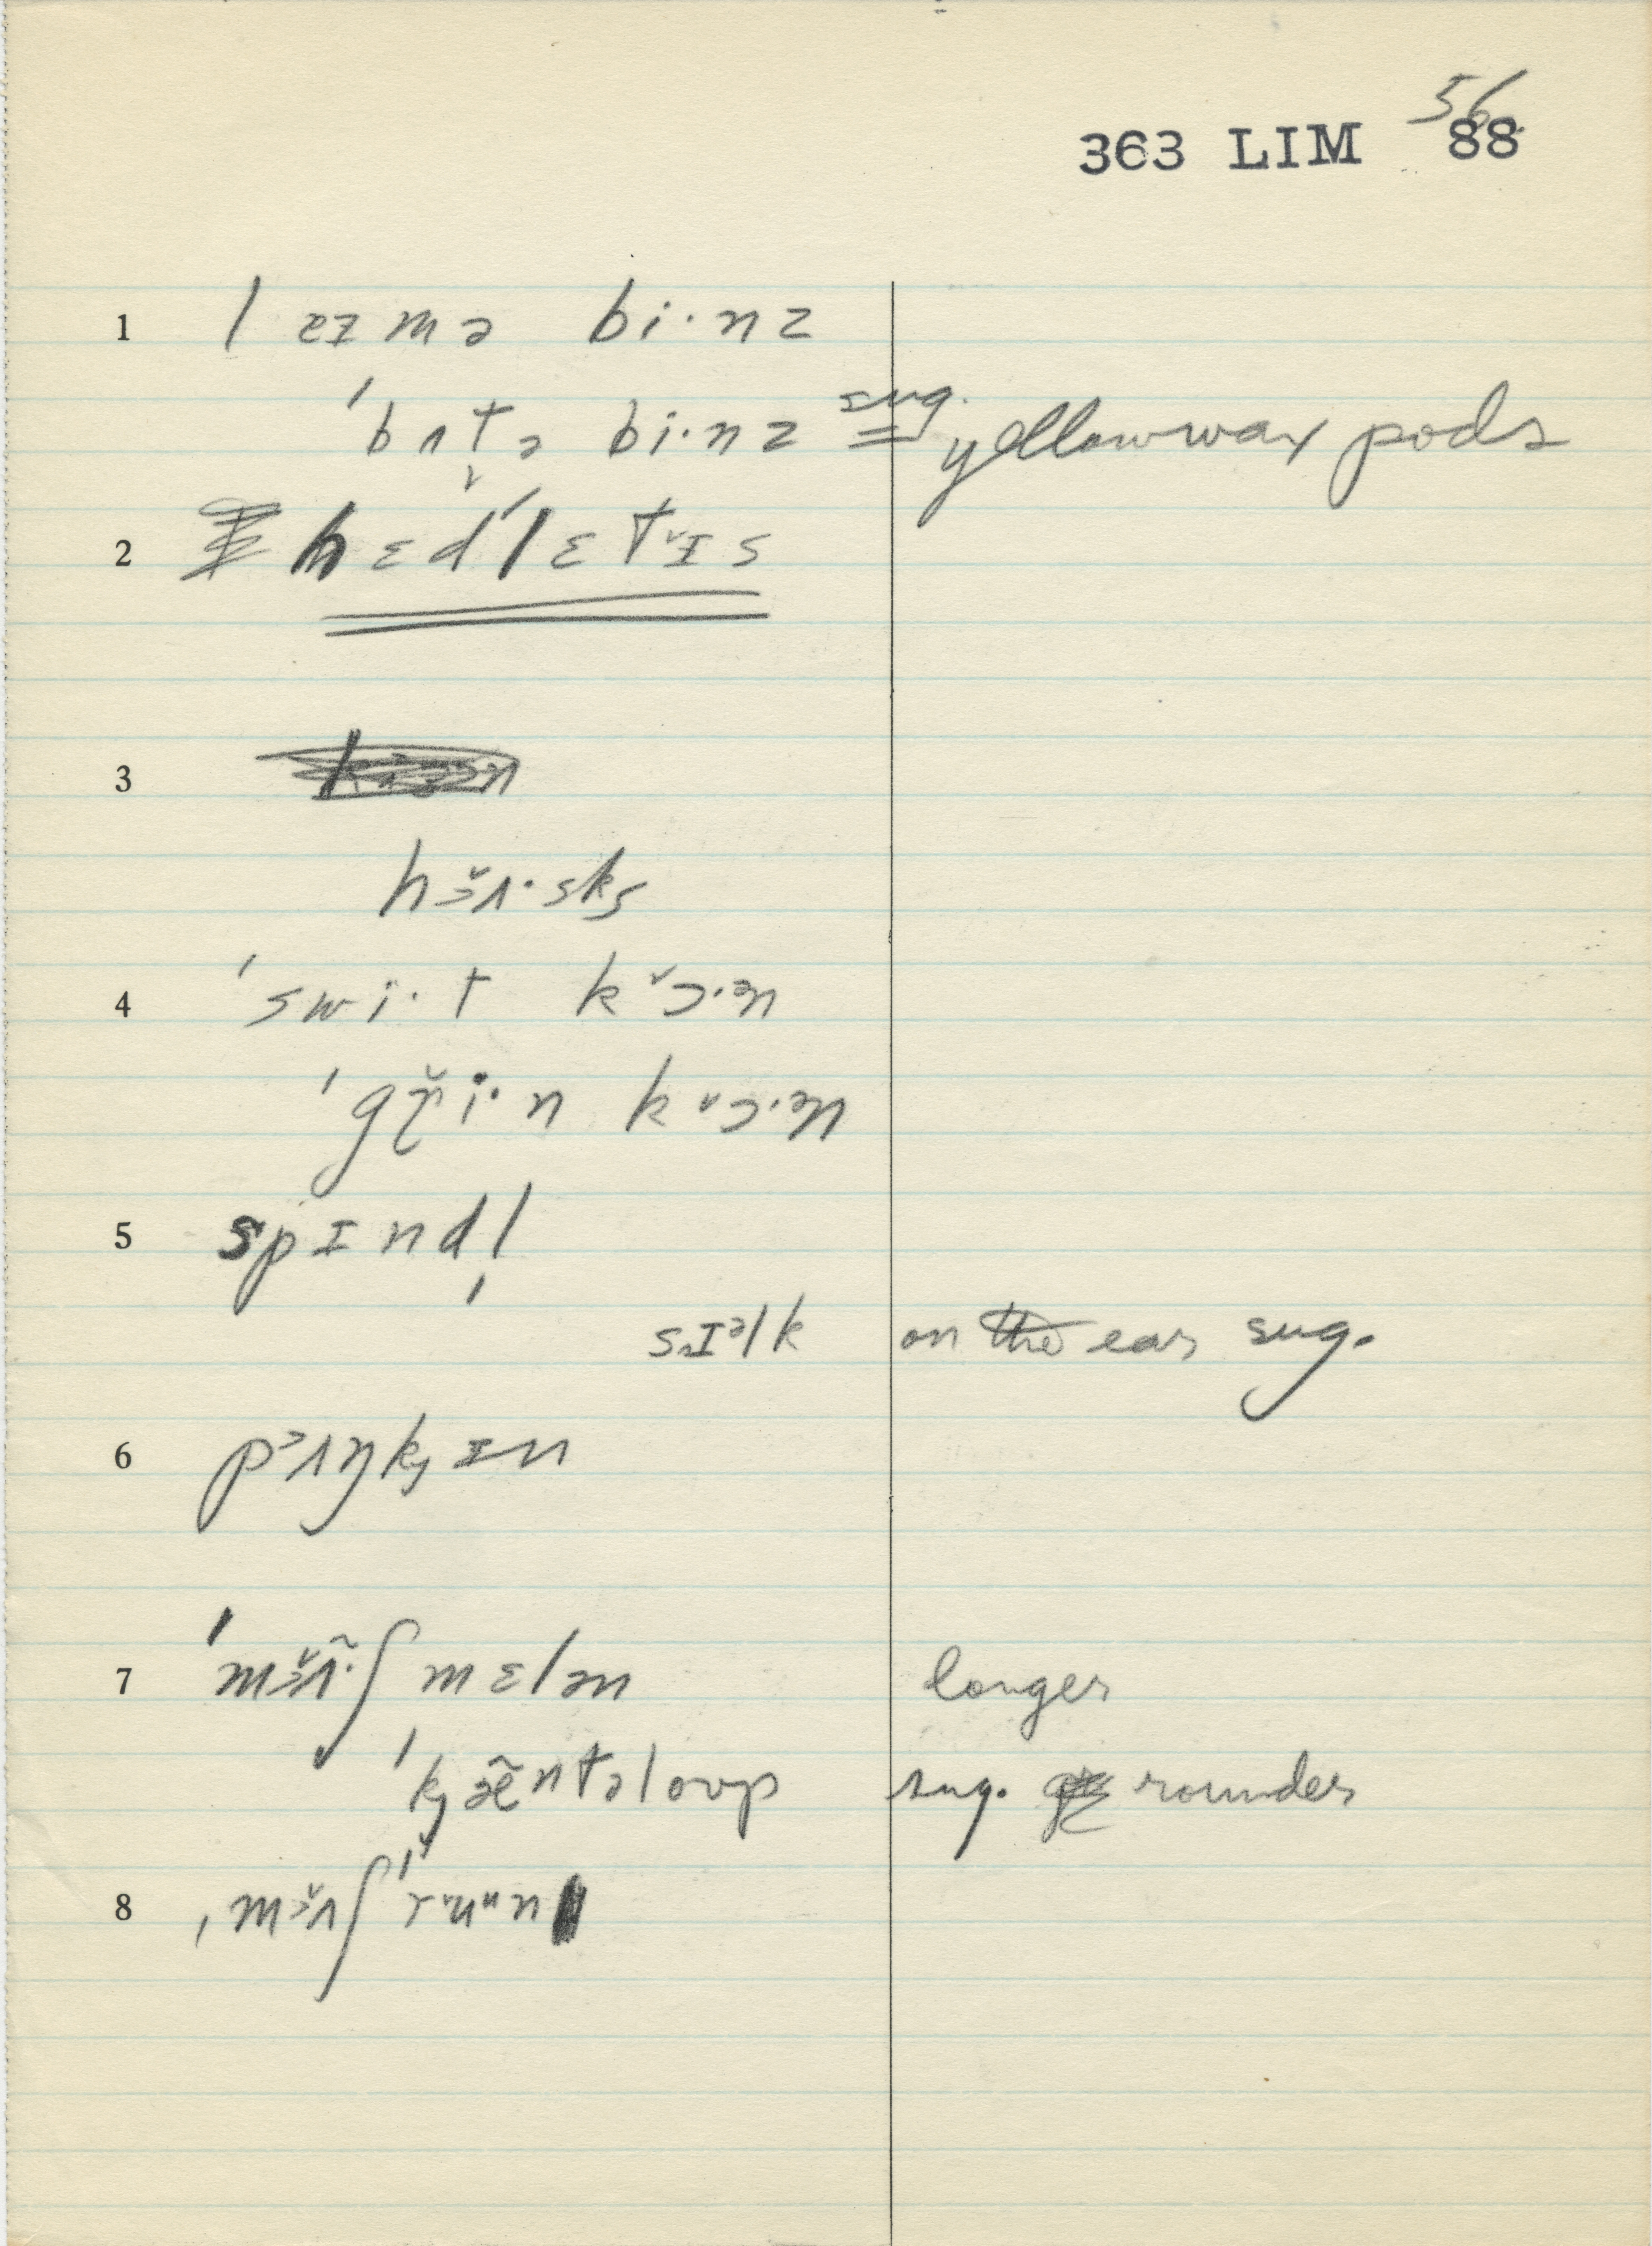 56
363 LIM 88
1 leɪmə bi·nz
'bʌt̬ə bi·nz sug. = yellow wax pods
2 hɛd'lɛtᵛɪs
3
hɜ̆ʌ·sks
4 'swi·t kᵛɔ·ən
'gr̆i·n kᵛɔ·ən
5 spɪndl̩
sɪəlk on ear sug.
6 pɜʌŋkɪn
7 'mɜ̆ʌ̃·ʃmɛlən longer
'kæ̃ntəloʊp sug. rounder
8 ˌmɜ̆ʌʃ'rᵛuᵘn